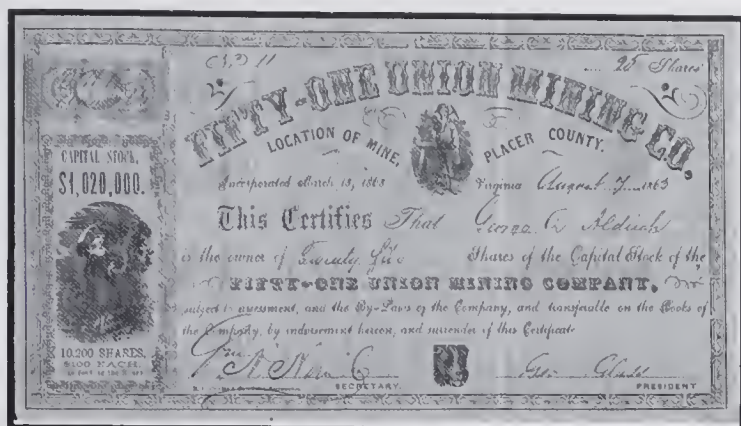 No 11
25 Shares
FIFTY-ONE UNION MINING CO.
LOCATION OF MINE, PLACER COUNTY.
CAPITAL STOCK,
$1,020,000.
Incorporated March 13, 1863 Virginia August 7 1863
This Certifies That George A Aldrich
is the owner of Twenty five Shares of the Capital Stock of the
FIFTY-ONE UNION MINING COMPANY,
subject to assessment, and the By-Laws of the Company, and transferable on the Books of
the Company, by indorsement hereon, and surrender of this Certificate
10,200 SHARES,
$100 EACH.
SECRETARY.
PRESIDENT